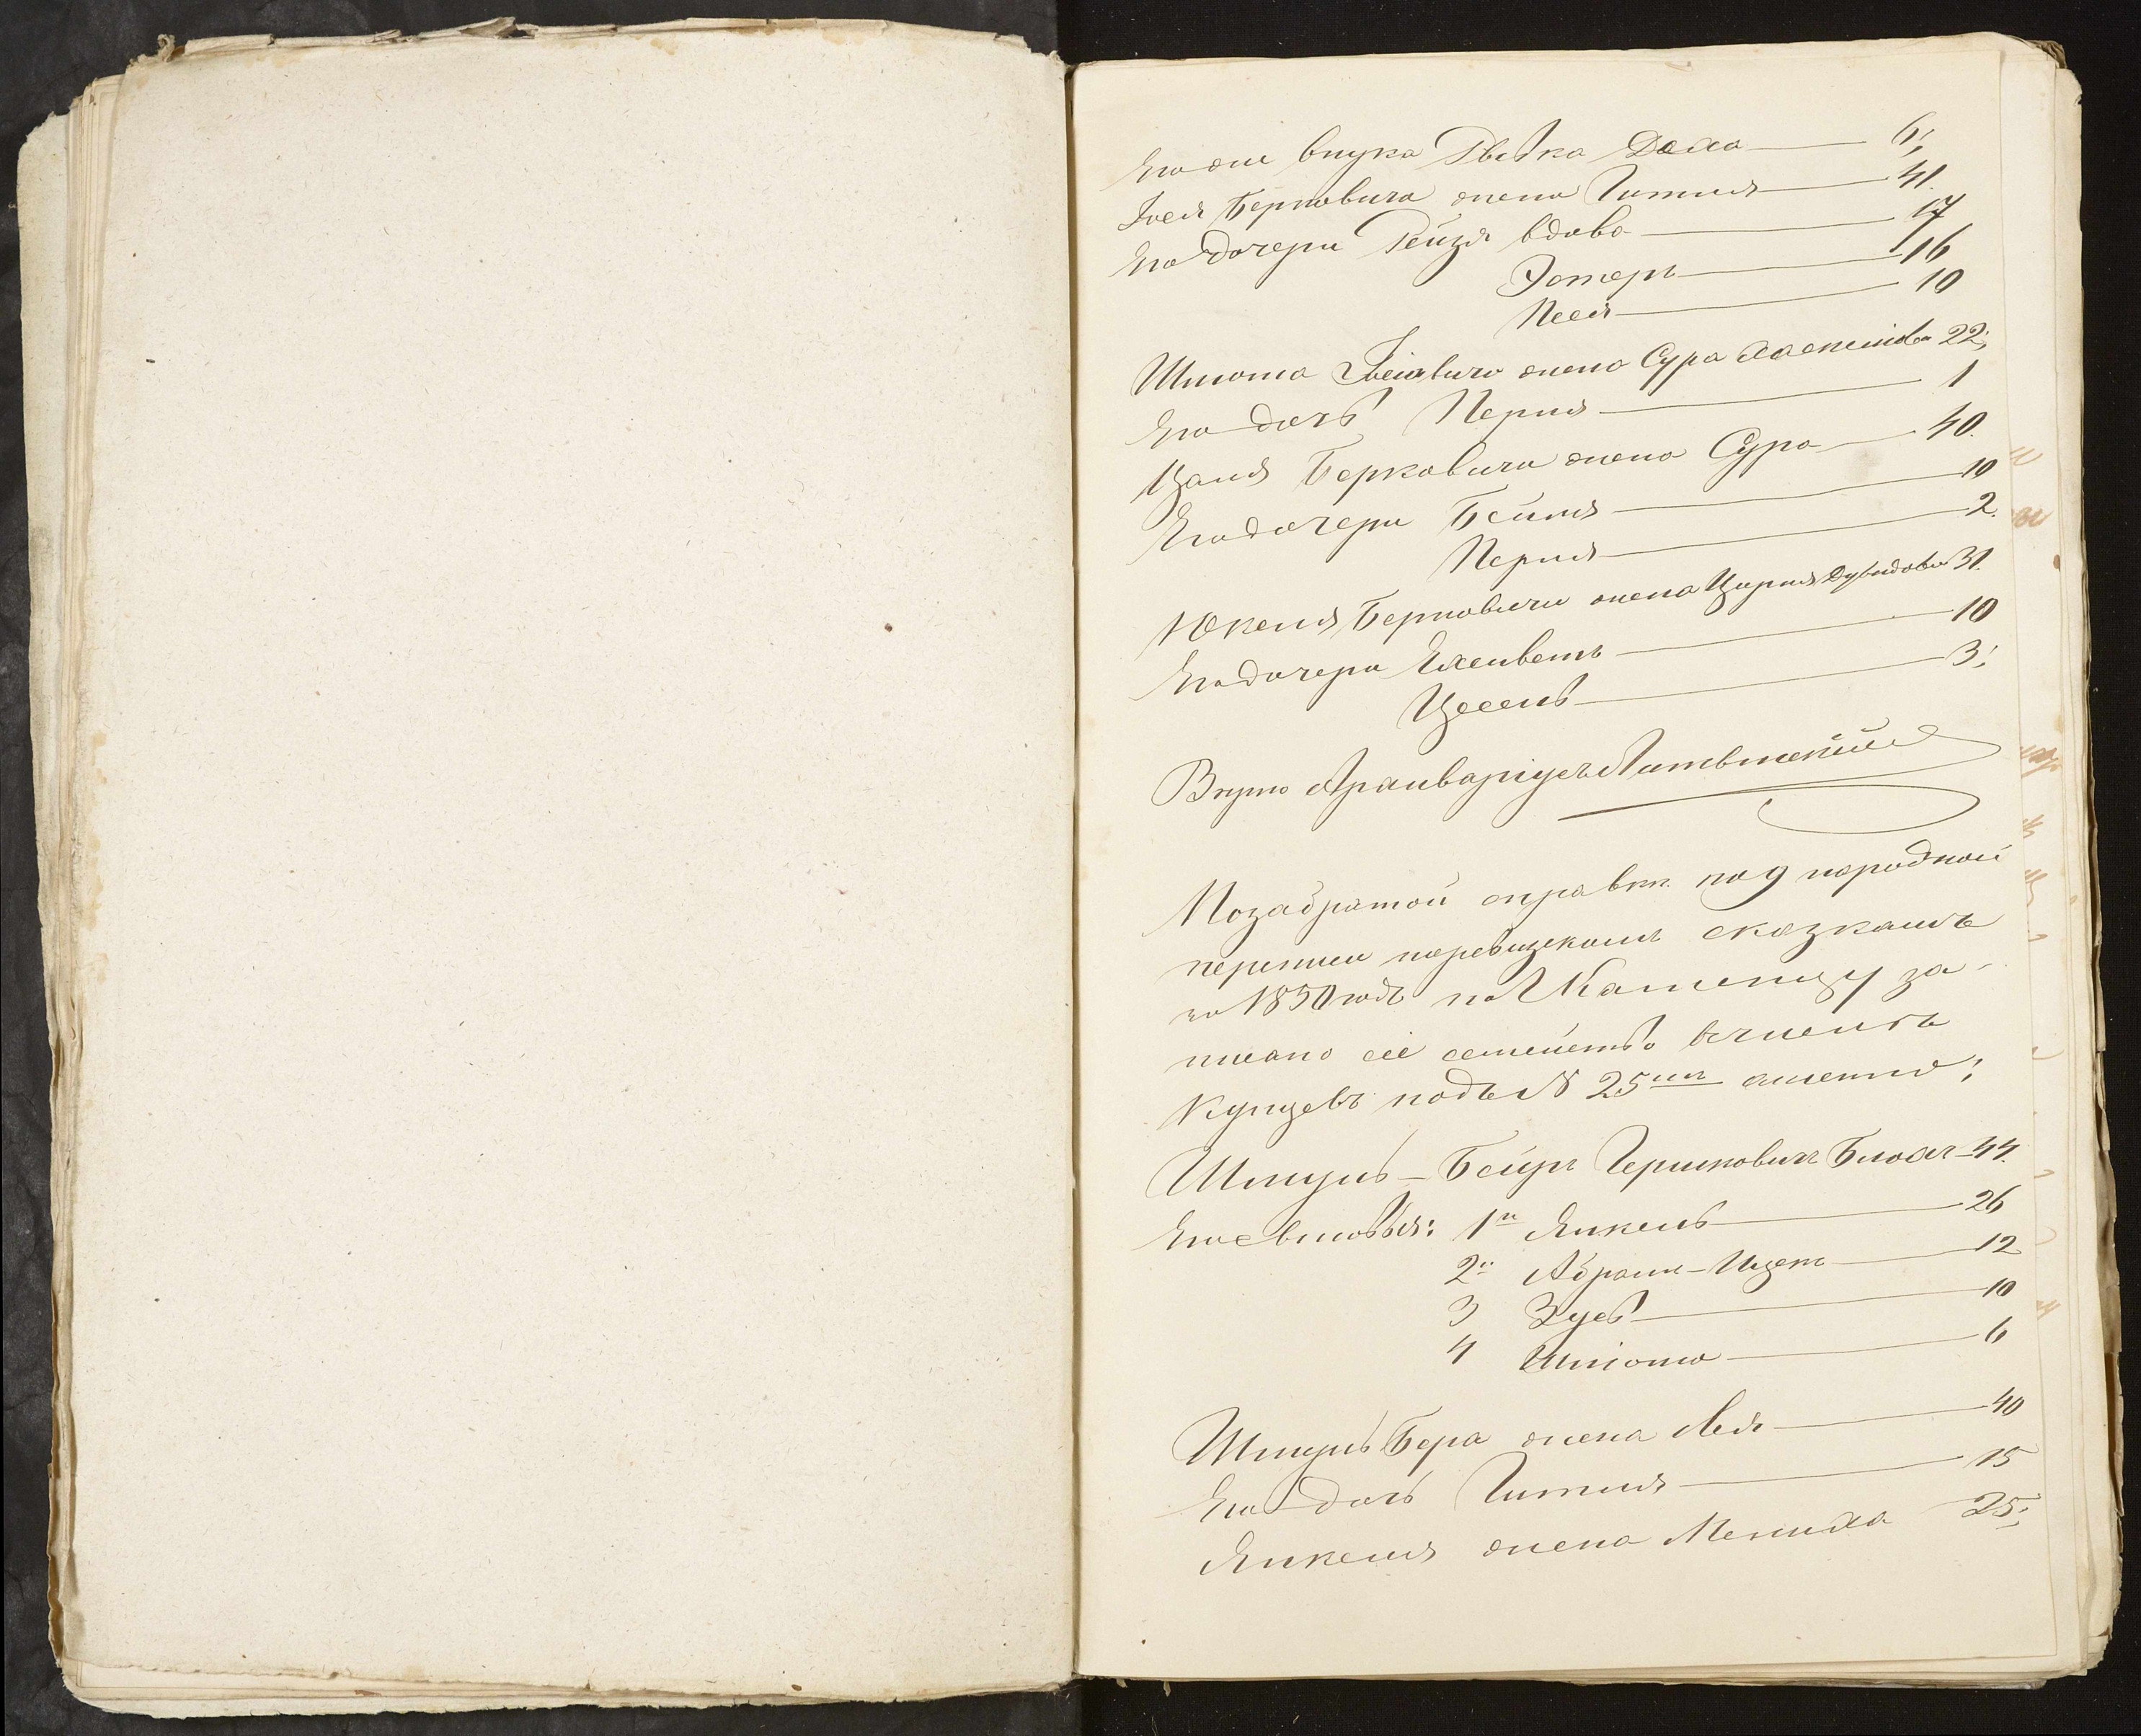 Его же внука Рывка Доха — 6;
Іося Берковича жена Гитля — 41.
Его дочери Рейзя вдова — 17
Эстеръ — 16
Песя — 10
Шлиома Іосіовича жена Сура 22;
Его дочь Перля — 1
Цаля Берковича жена Сура — 40.
Его дочери Бейля — 10
Перля — 2.
Юкеля Берковича жена Цирля Дувидова 31.
Его дочери Елисиветъ — 10
Цесель — 3;
Вѣрно Архиваріусъ Литвинскій
По забратой справкѣ по 9 народной
переписи ревизскимъ сказкамъ
за 1850 годъ по Каменцу за-
писано сіе семейство въ числѣ
Купцевъ подъ N 25мъ именно:
Шмуль-Беиръ Гершковичъ Блохъ — 44.
Его сыновья: 1й Янкель — 26
2й Абрамъ-Ицекъ — 12
3 Зусь — 10
4 Шліома — 6
Шмуль Бера жена Лея — 40
Его дочь Гитля — 15
Янкеля жена Мениха 25;